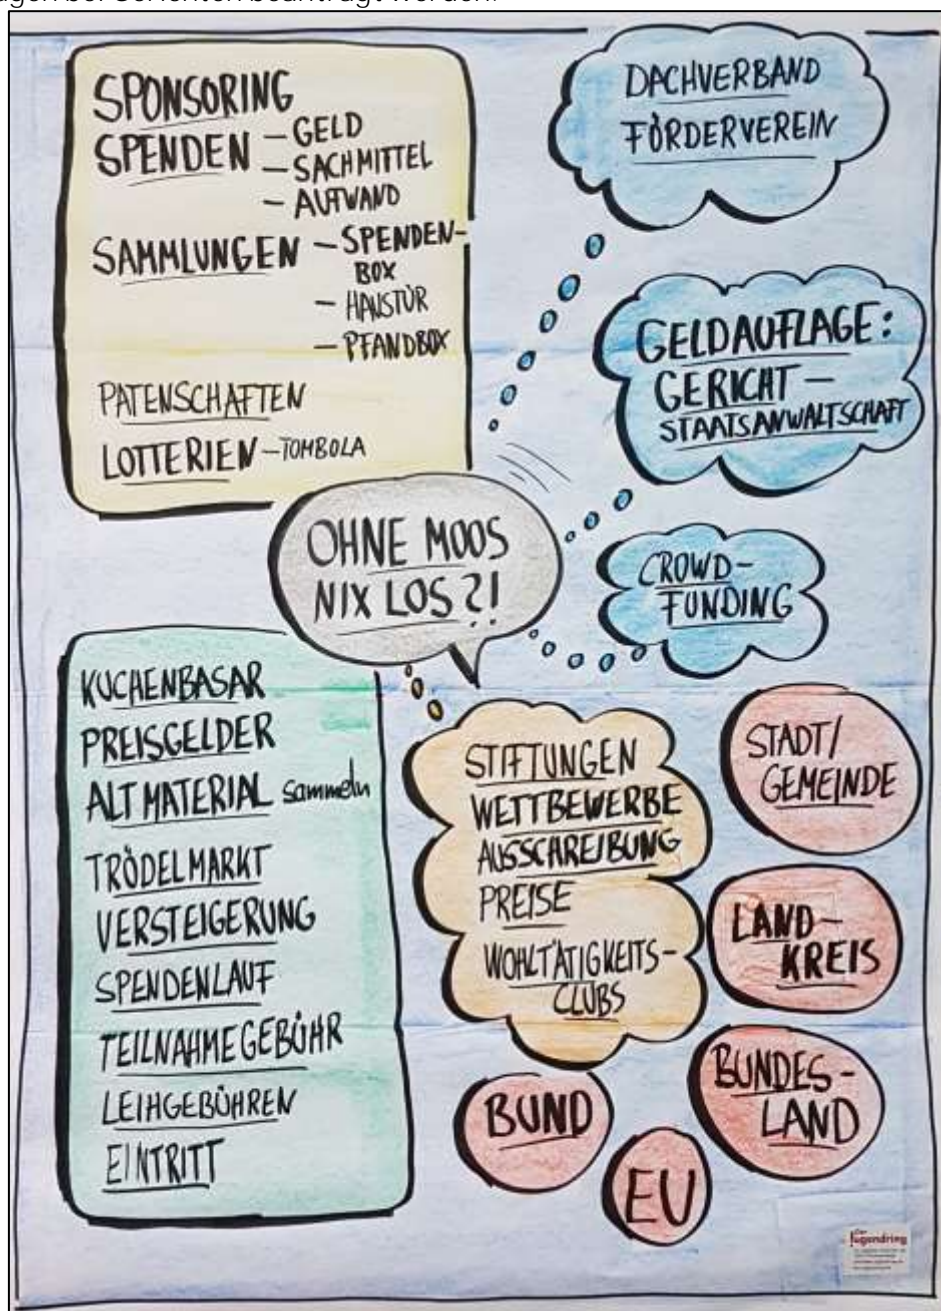 SPONSORING
SPENDEN – GELD
– SACHMITTEL
– AUFWAND
SAMMLUNGEN – SPENDEN-
BOX
– HAUSTÜR
– PFANDBOX
PATENSCHAFTEN
LOTTERIEN – TOMBOLA
DACHVERBAND
FÖRDERVEREIN
GELDAUFLAGE:
GERICHT –
STAATSANWALTSCHAFT
OHNE MOOS
NIX LOS?!
CROWD-
FUNDING
KUCHENBASAR
PREISGELDER
ALTMATERIAL sammeln
TRÖDELMARKT
VERSTEIGERUNG
SPENDENLAUF
TEILNAHMEGEBÜHR
LEIHGEBÜHREN
EINTRITT
STIFTUNGEN
WETTBEWERBE
AUSSCHREIBUNG
PREISE
WOHLTÄTIGKEITS-
CLUBS
STADT/
GEMEINDE
LAND-
KREIS
BUNDES-
LAND
BUND
EU
Jugendring